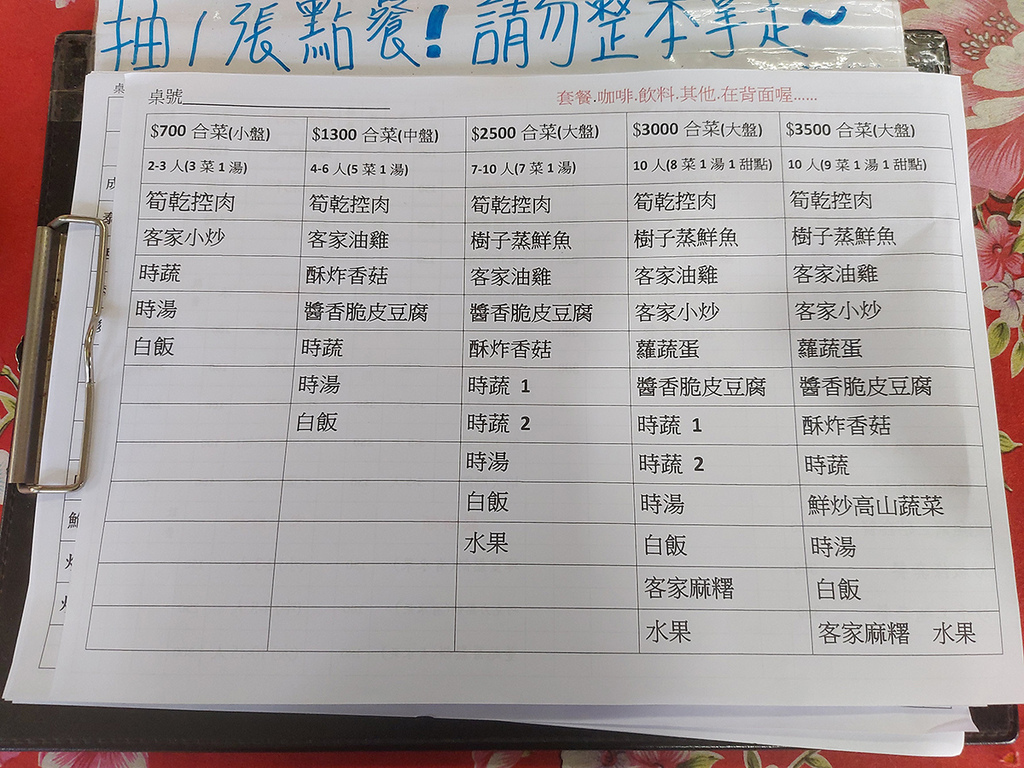 抽1張點餐!請勿整本拿走~
桌號 套餐.咖啡.飲料.其他.在背面喔......
$700 合菜(小盤) $1300 合菜(中盤) $2500 合菜(大盤) $3000 合菜(大盤) $3500 合菜(大盤)
2-3 人(3 菜 1 湯) 4-6 人(5 菜 1 湯) 7-10 人(7 菜 1 湯) 10 人(8 菜 1 湯 1 甜點) 10 人(9 菜 1 湯 1 甜點)
筍乾控肉 筍乾控肉 筍乾控肉 筍乾控肉 筍乾控肉
客家小炒 客家油雞 樹子蒸鮮魚 樹子蒸鮮魚 樹子蒸鮮魚
時蔬 酥炸香菇 客家油雞 客家油雞 客家油雞
時湯 醬香脆皮豆腐 醬香脆皮豆腐 客家小炒 客家小炒
白飯 時蔬 酥炸香菇 蘿蔬蛋 蘿蔬蛋
時湯 時蔬 1 醬香脆皮豆腐 醬香脆皮豆腐
白飯 時蔬 2 時蔬 1 酥炸香菇
時湯 時蔬 2 時蔬
白飯 時湯 鮮炒高山蔬菜
水果 白飯 時湯
客家麻糬 白飯
水果 客家麻糬 水果